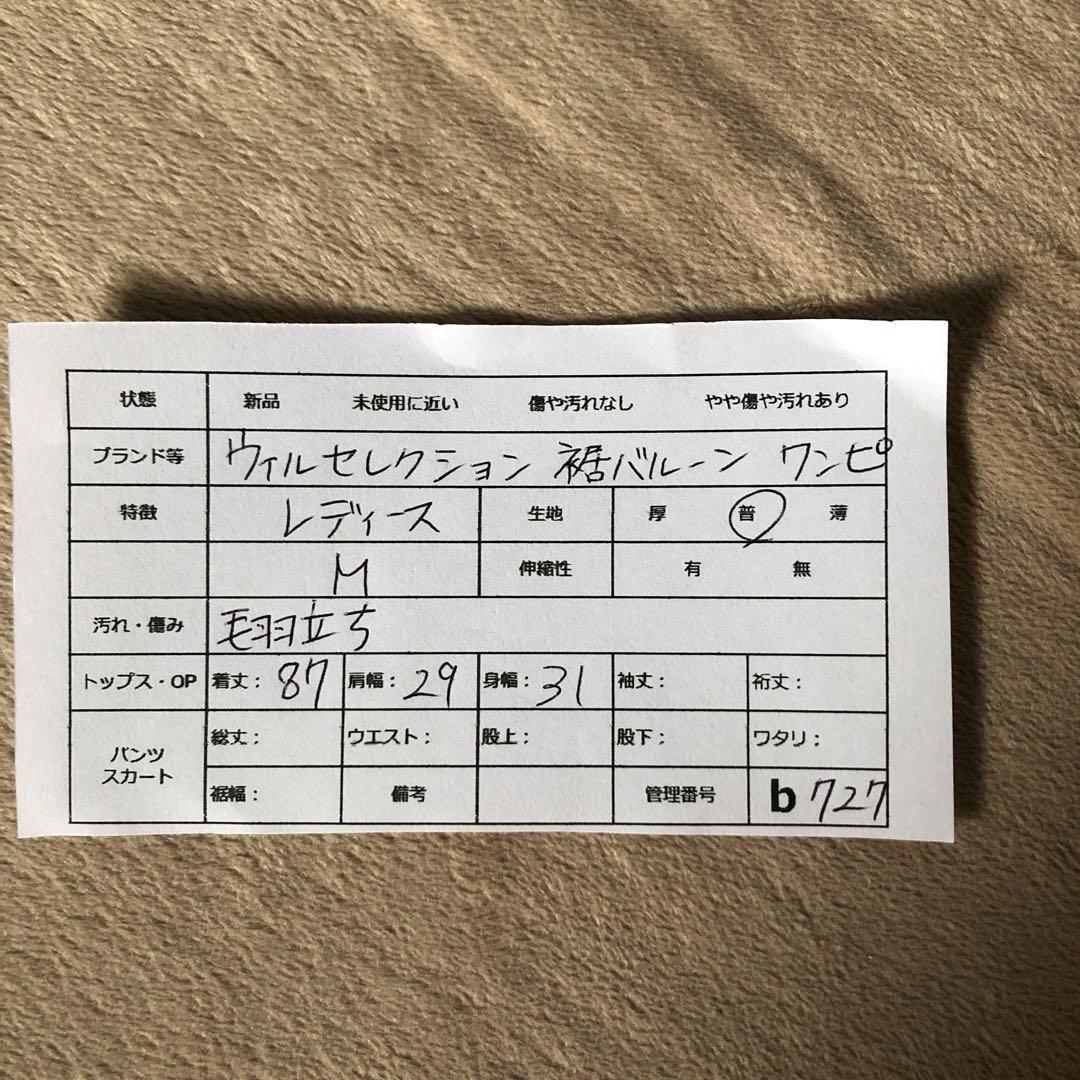 状態 新品 未使用に近い 傷や汚れなし やや傷や汚れあり
ブランド等 ウィルセレクション 裾バルーン ワンピ
特徴 レディース 生地 厚 普 薄
M 伸縮性 有 無
汚れ・傷み 毛羽立ち
トップス・OP 着丈: 87 肩幅: 29 身幅: 31 袖丈: 裄丈:
パンツ スカート 総丈: ウエスト: 股上: 股下: ワタリ:
裾幅: 備考 管理番号 b 727